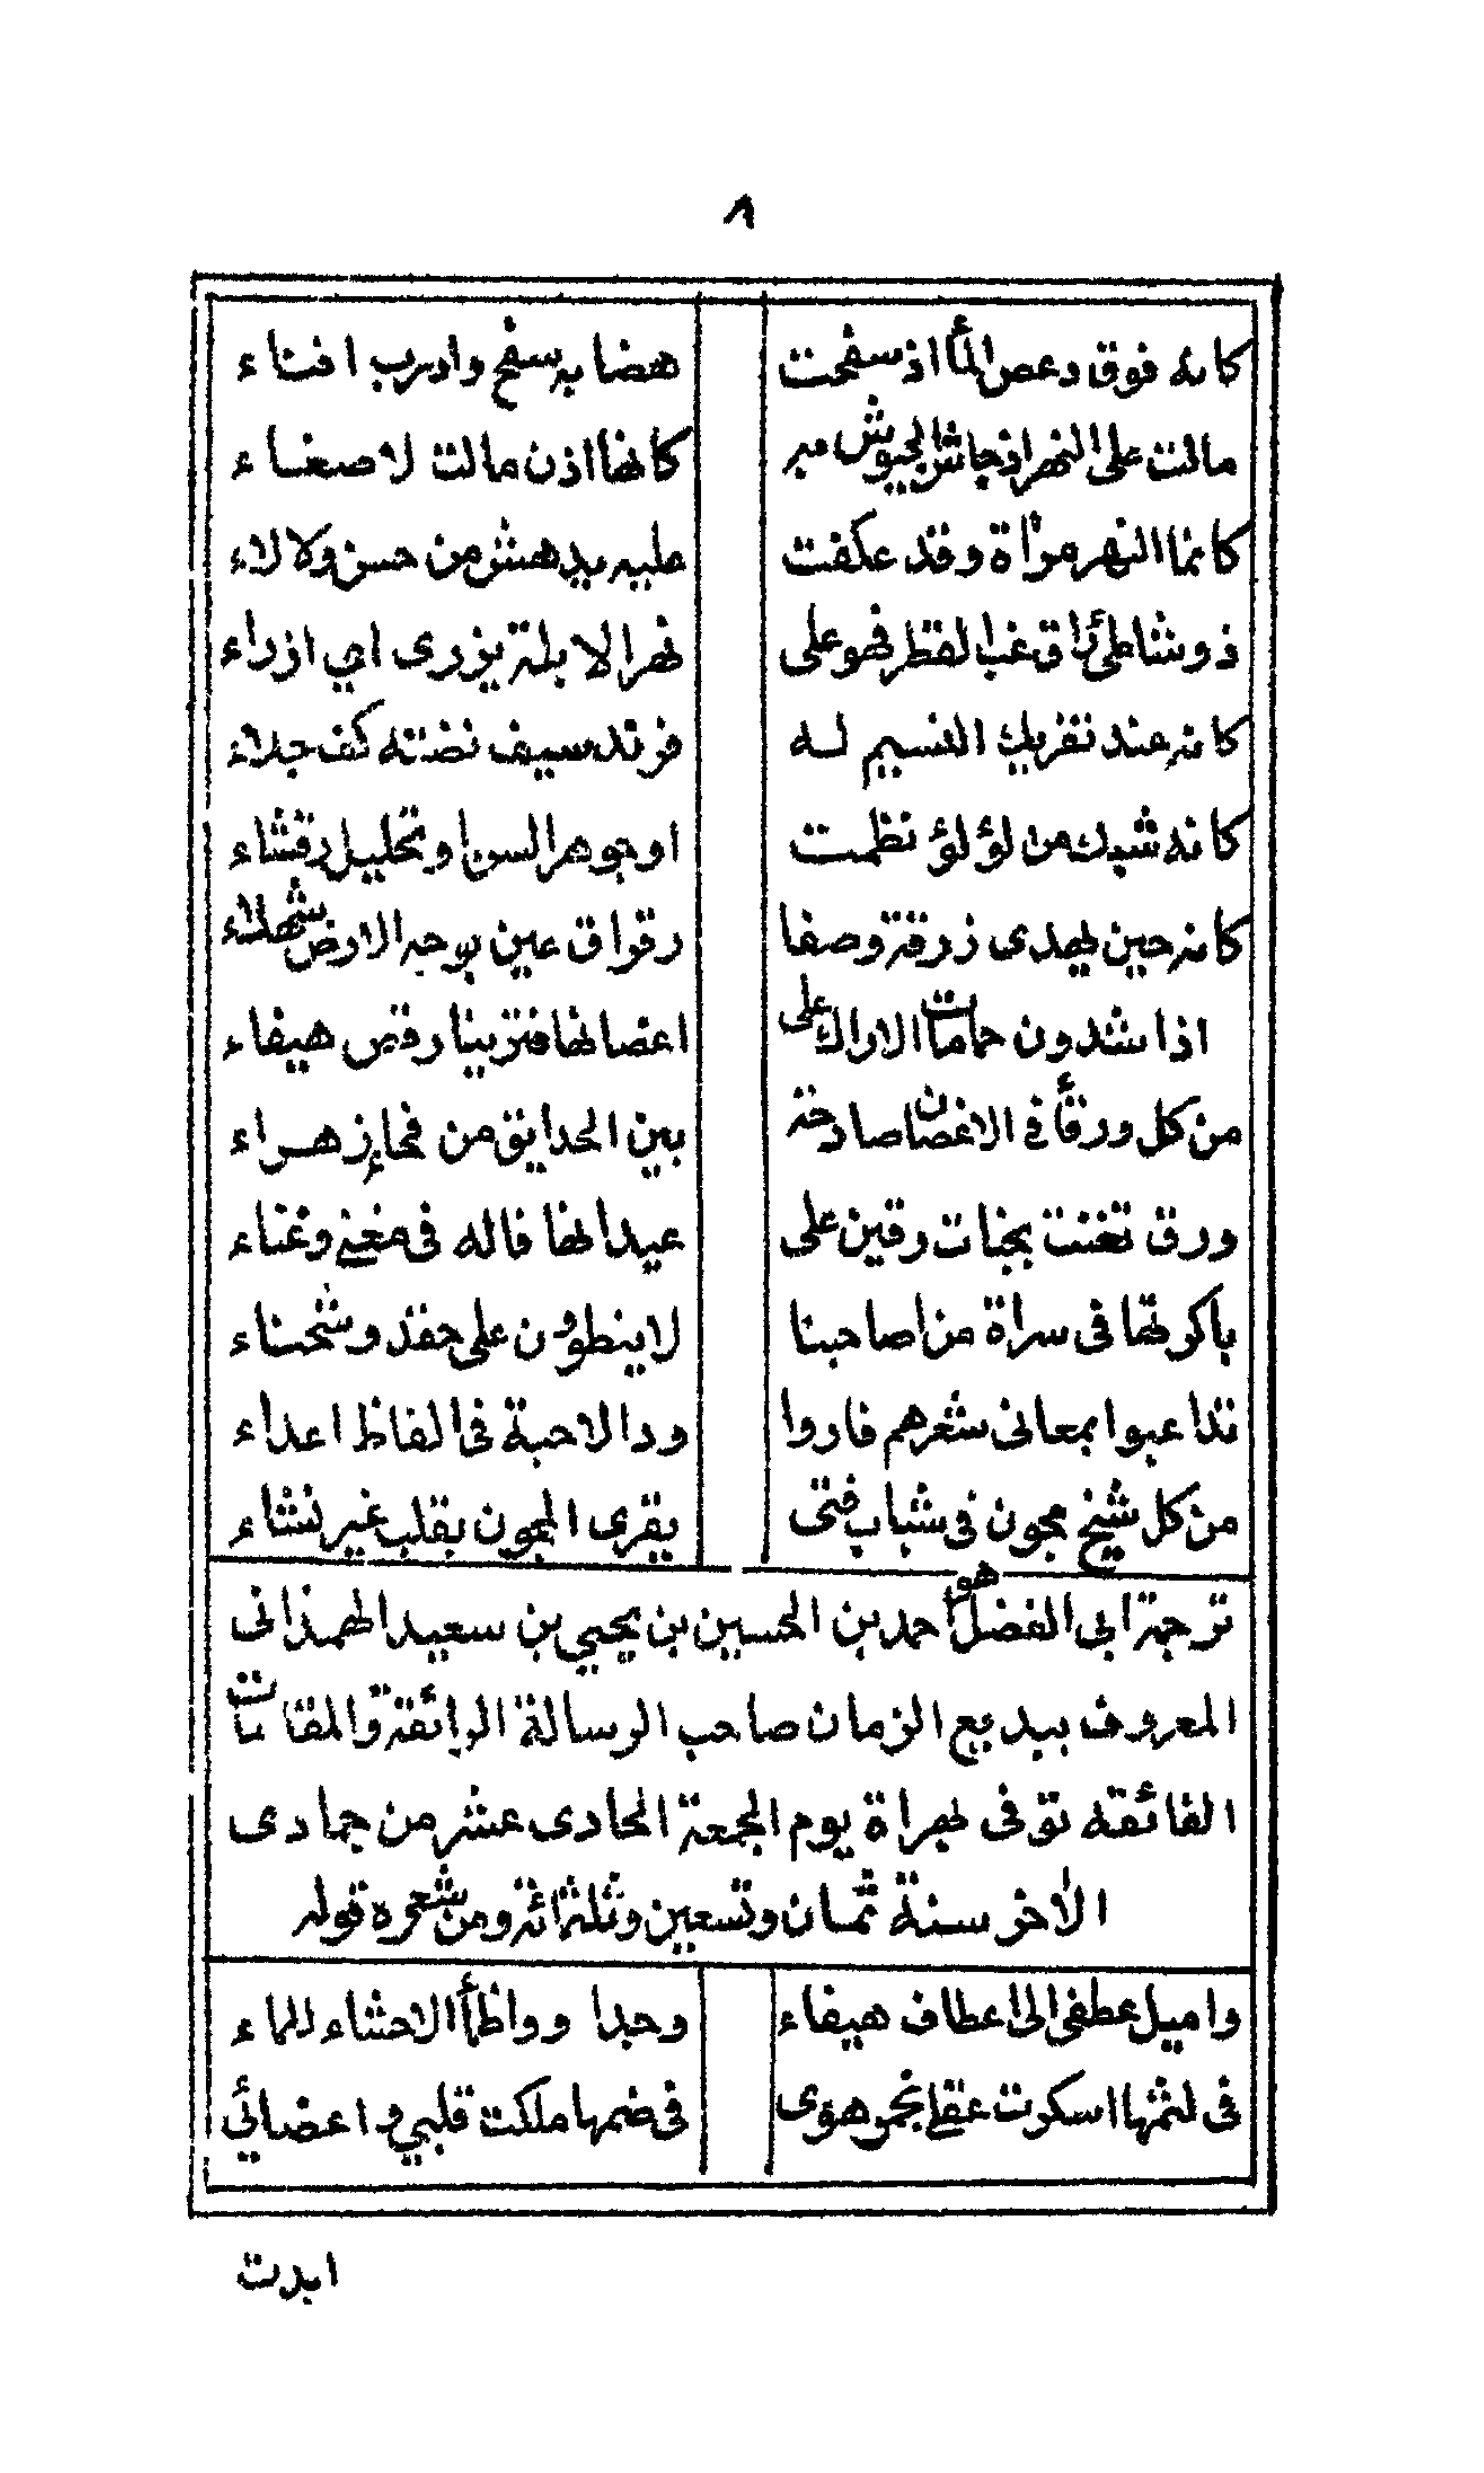 ٨
كانه فوق دعص الماأ اذ سفحت هضابه سفح واد رب افناء
مالت على النهر اذ جاش الجيوش به كانها اذن مالت لاصغاء
كانما النهر مرآة وقد عكفت عليه يدهش من حسن ولالاء
ذو شاطئ راق غب القطر فهو على نهر الابلة يزرى اي ازراء
كانه عند تفريك النسيم له فرند سيف نضته كف جلاء
كانه شبك من لؤلؤ نظمت او جوهر السن او تحليل رقشاء
كانه حين يهدى زرقة وصفا رقراق عين بوجه الارض شهلاء
اذا شدون حمامات الاراك على اغصانها فتزينا رقص هيفاء
من كل ورقأ في الاغصان صادحة بين الحدايق من فحاء زهراء
ورق تغنت بجنات رقين على عيدانها فاله فى مغنى وغناء
باكرتها فى سراة من اصاحبنا لا ينطوون على حقد وشحناء
تداعبوا بمعانى شعرهم فاروا ود الاحبة فى الفاظ اعداء
من كل شيخ مجون فى شباب فتى يقرى المجون بقلب غير نشاء
ترجمة ابى الفضل هو احمد بن الحسين بن يحيي بن سعيد الهمذانى
المعروف ببديع الزمان صاحب الرسالة الرائقة والمقامات
الفائقه توفى بهراة يوم الجمعة الحادى عشر من جمادى
الاخر سنة ثمان وتسعين وثلثمائة ومن شعره قوله
واميل عطفى الى اعطاف هيفاء وجدا وواظمأ الاحشاء للماء
فى لثمها اسكرت عقلى بخمر هوى فى ضمها ملكت قلبي واعضائي
ابدت